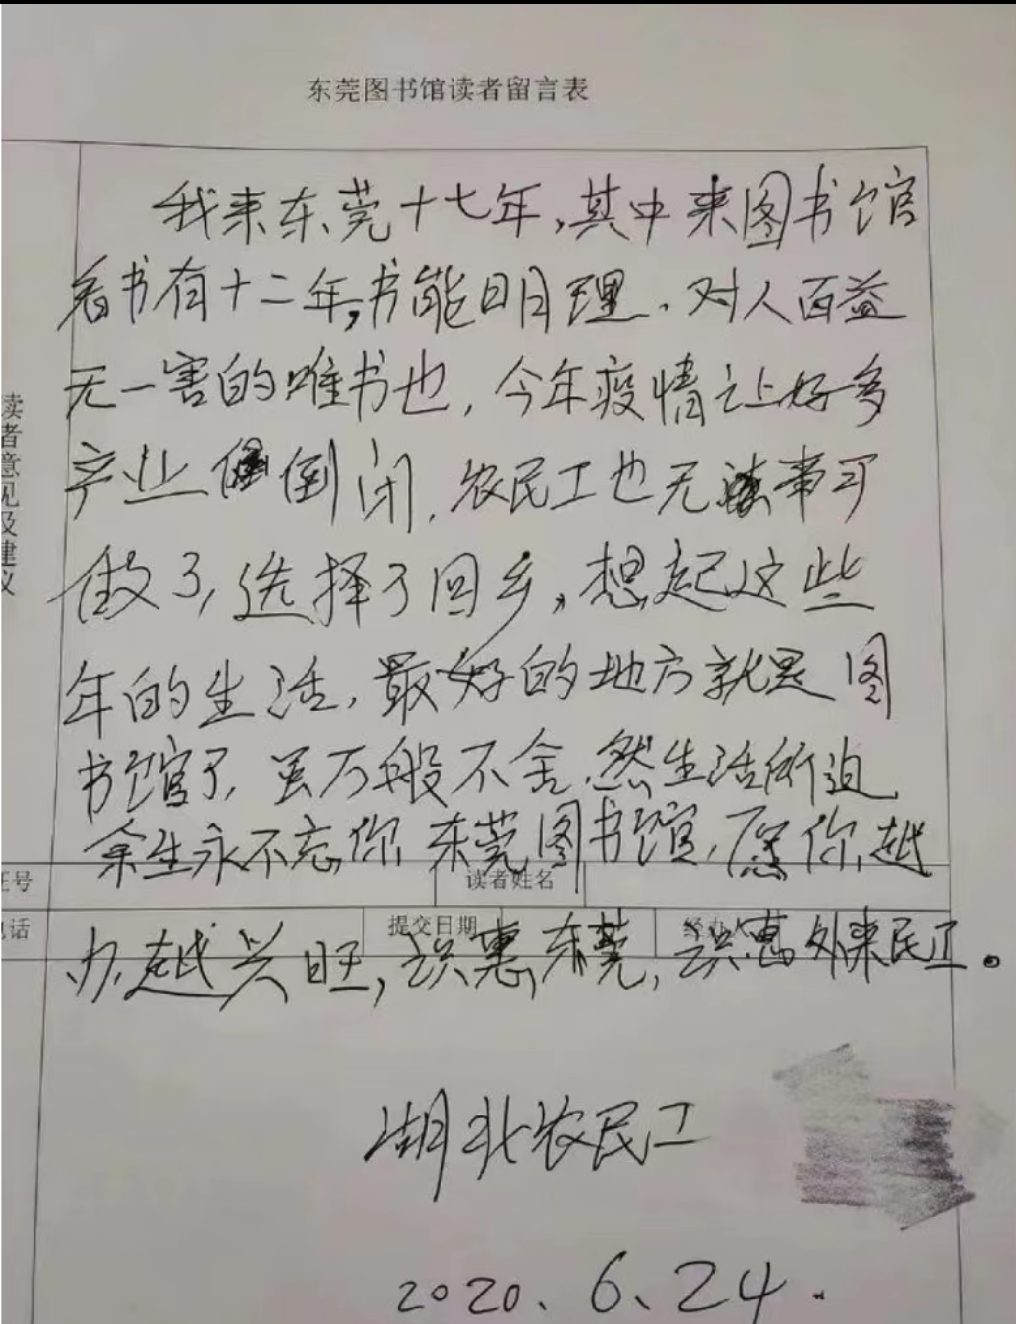 东莞图书馆读者留言表
我来东莞十七年,其中来图书馆
看书有十二年,书能明理,对人百益
无一害的唯书也,今年疫情让好多
产业倒闭,农民工也无事可
做了,选择了回乡,想起这些
年的生活,最好的地方就是图
书馆了,虽万般不舍,然生活所迫,
余生永不忘你,东莞图书馆,愿你越
办越兴旺,识惠东莞,识惠外来民工。
读者意见及建议
证号
读者姓名
电话
提交日期
经办人
湖北农民工
2020、6、24.